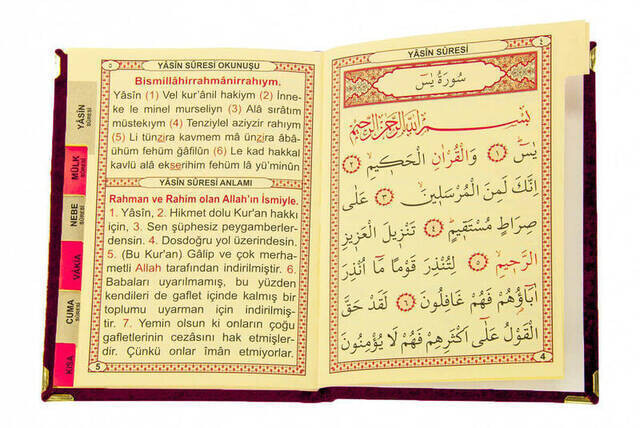 YÂSÎN SÛRESİ ٤
سُورَةُ يٰسٓ
بِسْمِ اللّٰهِ الرَّحْمٰنِ الرَّحِيمِ
يٰسٓ ﴿١﴾ وَالْقُرْاٰنِ الْحَكِيمِ ﴿٢﴾
اِنَّكَ لَمِنَ الْمُرْسَلِينَ ﴿٣﴾ عَلٰى
صِرَاطٍ مُسْتَقِيمٍ ﴿٤﴾ تَنْزِيلَ الْعَزِيزِ
الرَّحِيمِ ﴿٥﴾ لِتُنْذِرَ قَوْمًا مَٓا اُنْذِرَ
اٰبَٓاؤُ۬هُمْ فَهُمْ غَافِلُونَ ﴿٦﴾ لَقَدْ حَقَّ
الْقَوْلُ عَلٰٓى اَكْثَرِهِمْ فَهُمْ لَا يُؤْمِنُونَ
4
٥ YÂSÎN SÛRESİ OKUNUŞU
Bismillâhirrahmânirrahıym.
Yâsîn (1) Vel kur'ânil hakiym (2) İnne-
ke le minel murseliyn (3) Alâ sırâtım
müstekıym (4) Tenziylel aziyzir rahıym
(5) Li tünzira kavmem mâ ünzira âbâ-
ühüm fehüm ğâfilûn (6) Le kad hakkal
kavlü alâ ekserihim fehüm lâ yü'minûn
YÂSÎN SÛRESİ ANLAMI
Rahman ve Rahim olan Allah'ın İsmiyle.
1. Yâsîn, 2. Hikmet dolu Kur'an hakkı
için, 3. Sen şüphesiz peygamberler-
densin. 4. Dosdoğru yol üzerindesin.
5. (Bu Kur'an) Gâlip ve çok merha-
metli Allah tarafından indirilmiştir. 6.
Babaları uyarılmamış, bu yüzden
kendileri de gaflet içinde kalmış bir
toplumu uyarman için indirilmiş-
tir. 7. Yemin olsun ki onların çoğu
gafletlerinin cezasını hak etmişler-
dir. Çünkü onlar îmân etmiyorlar.
5
YÂSİN
SÛRESİ
MÜLK
SÛRESİ
NEBE
SÛRESİ
VÂKIA
CUMA
SÛRESİ
KISA